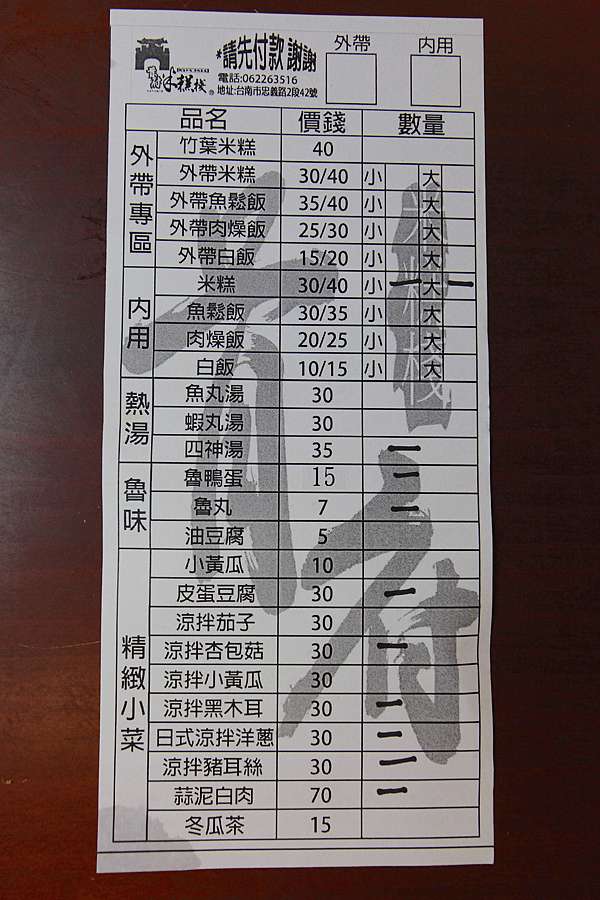 *請先付款 謝謝
電話:062263516
地址:台南市忠義路2段42號
外帶 內用
米糕棧
品名 價錢 數量
外帶專區
竹葉米糕 40
外帶米糕 30/40 小 大
外帶魚鬆飯 35/40 小 大
外帶肉燥飯 25/30 小 大
外帶白飯 15/20 小 大
內用
米糕 30/40 小 一 大 一
魚鬆飯 30/35 小 大
肉燥飯 20/25 小 大
白飯 10/15 小 大
熱湯
魚丸湯 30
蝦丸湯 30
四神湯 35 一
魯味
魯鴨蛋 15 一
魯丸 7 一
油豆腐 5
精緻小菜
小黃瓜 10
皮蛋豆腐 30 一
涼拌茄子 30
涼拌杏包菇 30 一
涼拌小黃瓜 30
涼拌黑木耳 30 一
日式涼拌洋蔥 30 一
涼拌豬耳絲 30 一
蒜泥白肉 70 一
冬瓜茶 15